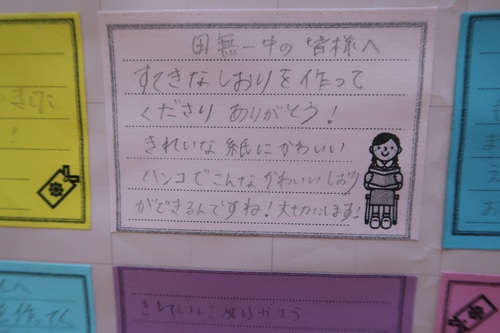 田無一中の皆様へ
すてきなしおりを作って
くださり ありがとう!
きれいな紙にかわいい
ハンコでこんなかわいいしおり
ができるんですね!大切にします!
ました
!
へ
を作ってく